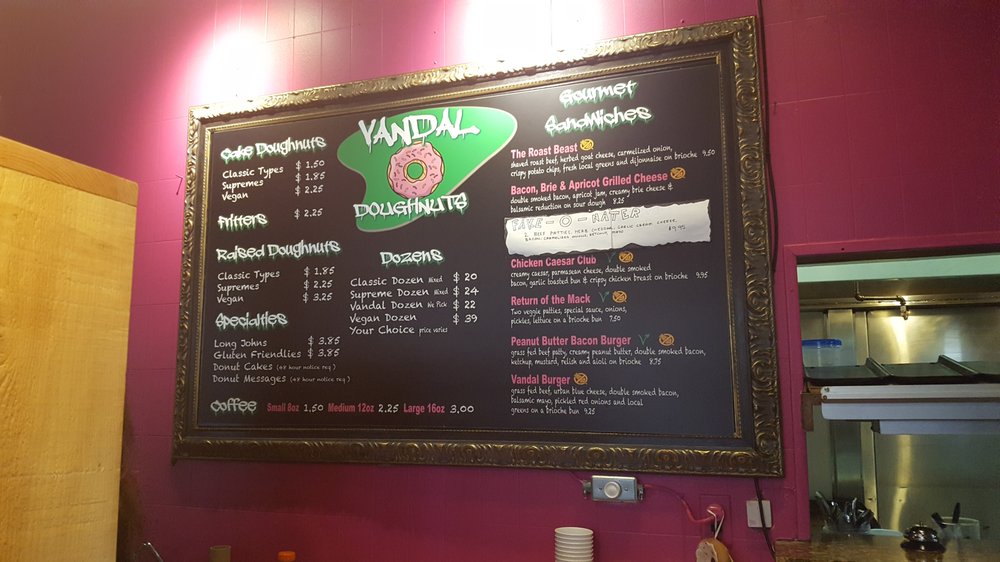 Cake Doughnuts
Classic Types $ 1.50
Supremes $ 1.85
Vegan $ 2.25
Fritters $ 2.25
Raised Doughnuts
Classic Types $ 1.85
Supremes $ 2.25
Vegan $ 3.25
Specialties
Long Johns $ 3.85
Gluten Friendlies $ 3.85
Donut Cakes (48 hour notice req)
Donut Messages (48 hour notice req)
Coffee Small 8oz 1.50 Medium 12oz 2.25 Large 16oz 3.00
VANDAL
DOUGHNUTS
Dozens
Classic Dozen Mixed $ 20
Supreme Dozen Mixed $ 24
Vandal Dozen We Pick $ 22
Vegan Dozen $ 39
Your Choice price varies
Gourmet
Sandwiches
The Roast Beast
shaved roast beef, herbed goat cheese, carmelized onion,
crispy potato chips, fresh local greens and dijonnaise on brioche 9.50
Bacon, Brie & Apricot Grilled Cheese
double smoked bacon, apricot jam, creamy brie cheese &
balsamic reduction on sour dough 8.25
2 BEEF PATTIES, HERB CHEDDAR, GARLIC CREAM CHEESE,
BACON, CARAMELIZED ONIONS, KETCHUP, MAYO $9.95
Chicken Caesar Club
creamy caesar, parmasean cheese, double smoked
bacon, garlic toasted bun & crispy chicken breast on brioche 9.95
Return of the Mack
Two veggie patties, special sauce, onions,
pickles, lettuce on a brioche bun 7.50
Peanut Butter Bacon Burger
grass fed beef patty, creamy peanut butter, double smoked bacon,
ketchup, mustard, relish and aioli on brioche 8.75
Vandal Burger
grass fed beef, urban blue cheese, double smoked bacon,
balsamic mayo, pickled red onions and local
greens on a brioche bun 9.25